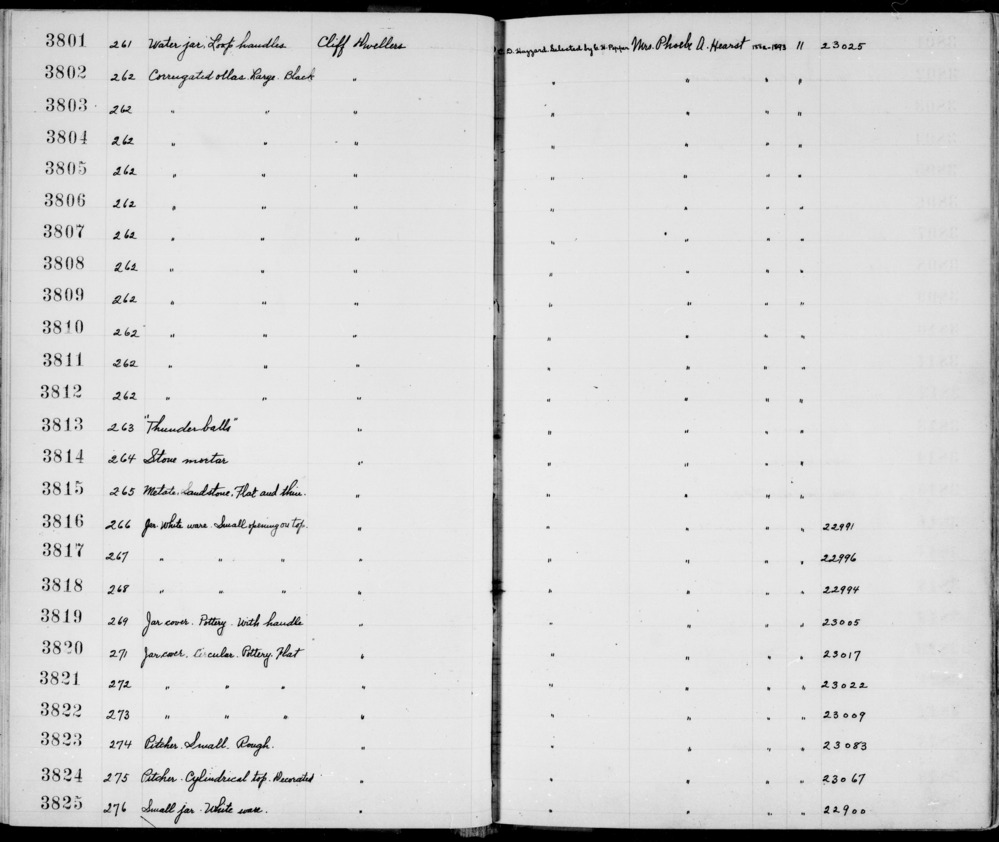 3801 261 Water jar. Loop handles Cliff Dwellers C. D. Hazzard. Selected by G. H. Pepper Mrs. Phoebe A. Hearst 11 23025
3802 262 Corrugated ollas. Large. Black " " " " "
3803 262 " " " " " " "
3804 262 " " " " " " "
3805 262 " " " " " " "
3806 262 " " " " " " "
3807 262 " " " " " " "
3808 262 " " " " " " "
3809 262 " " " " " " "
3810 262 " " " " " " "
3811 262 " " " " " " "
3812 262 " " " " " " "
3813 263 "Thunder balls" " " " " "
3814 264 Stone mortar " " " " "
3815 265 Metate. Sandstone. Flat and thin. " " " " "
3816 266 Jar. White ware. Small opening on top. " " " " " 22991
3817 267 " " " " " " " " 22996
3818 268 " " " " " " " " 22994
3819 269 Jar cover. Pottery. With handle " " " " " 23005
3820 271 Jar cover. Circular. Pottery. Flat " " " " " 23017
3821 272 " " " " " " " " 23022
3822 273 " " " " " " " " 23009
3823 274 Pitcher. Small. Rough. " " " " " 23083
3824 275 Pitcher. Cylindrical top. Decorated " " " " " 23067
3825 276 Small jar. White ware. " " " " " 22900